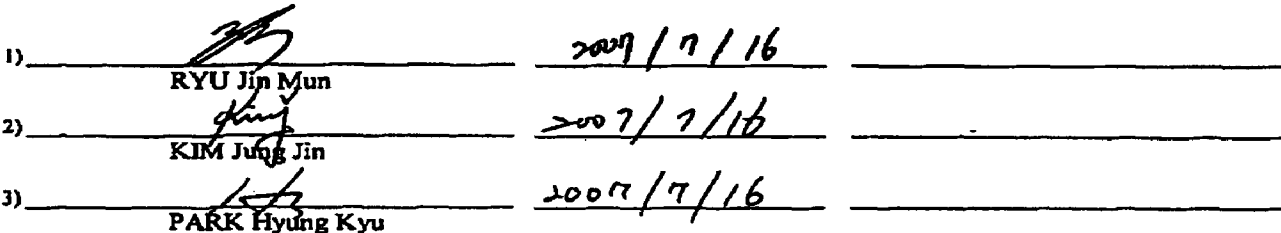 1) 2007/7/16
RYU Jin Mun
2) 2007/7/16
KIM Jung Jin
3) 2007/7/16
PARK Hyung Kyu